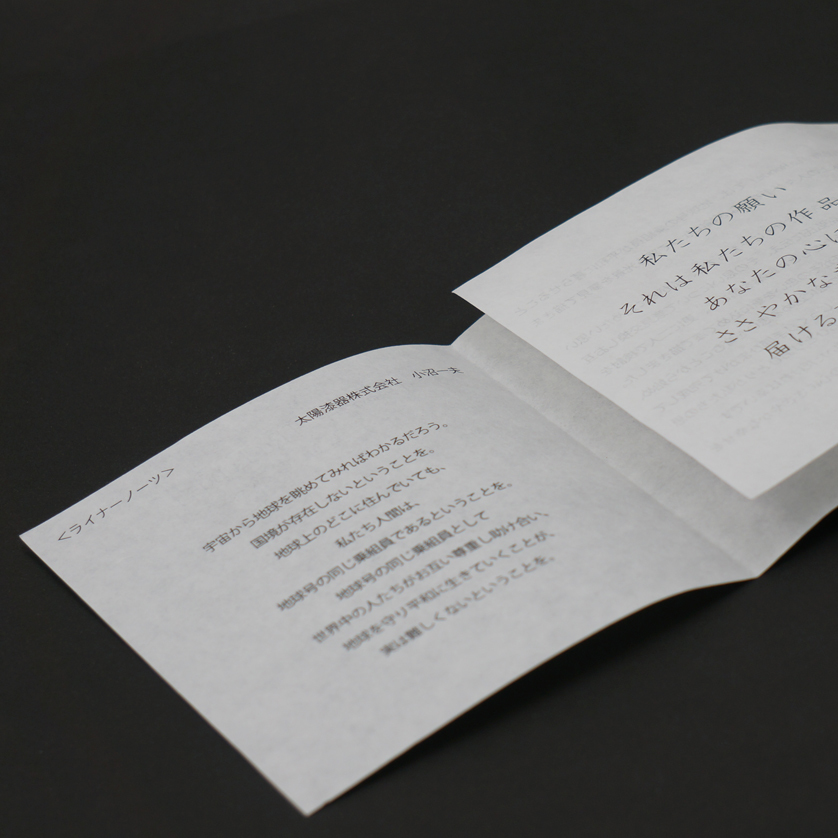 <ライナーノーツ>
太陽漆器株式会社 小沼一夫
宇宙から地球を眺めてみればわかるだろう。
国境が存在しないということを。
地球上のどこに住んでいても、
私たち人間は、
地球号の同じ乗組員であるということを。
地球号の同じ乗組員として
世界中の人たちがお互い尊重し助け合い、
地球を守り平和に生きていくことが、
実は難しくないということを。
私たちの願い
それは私たちの作品
あなたの心に
ささやかな
届ける